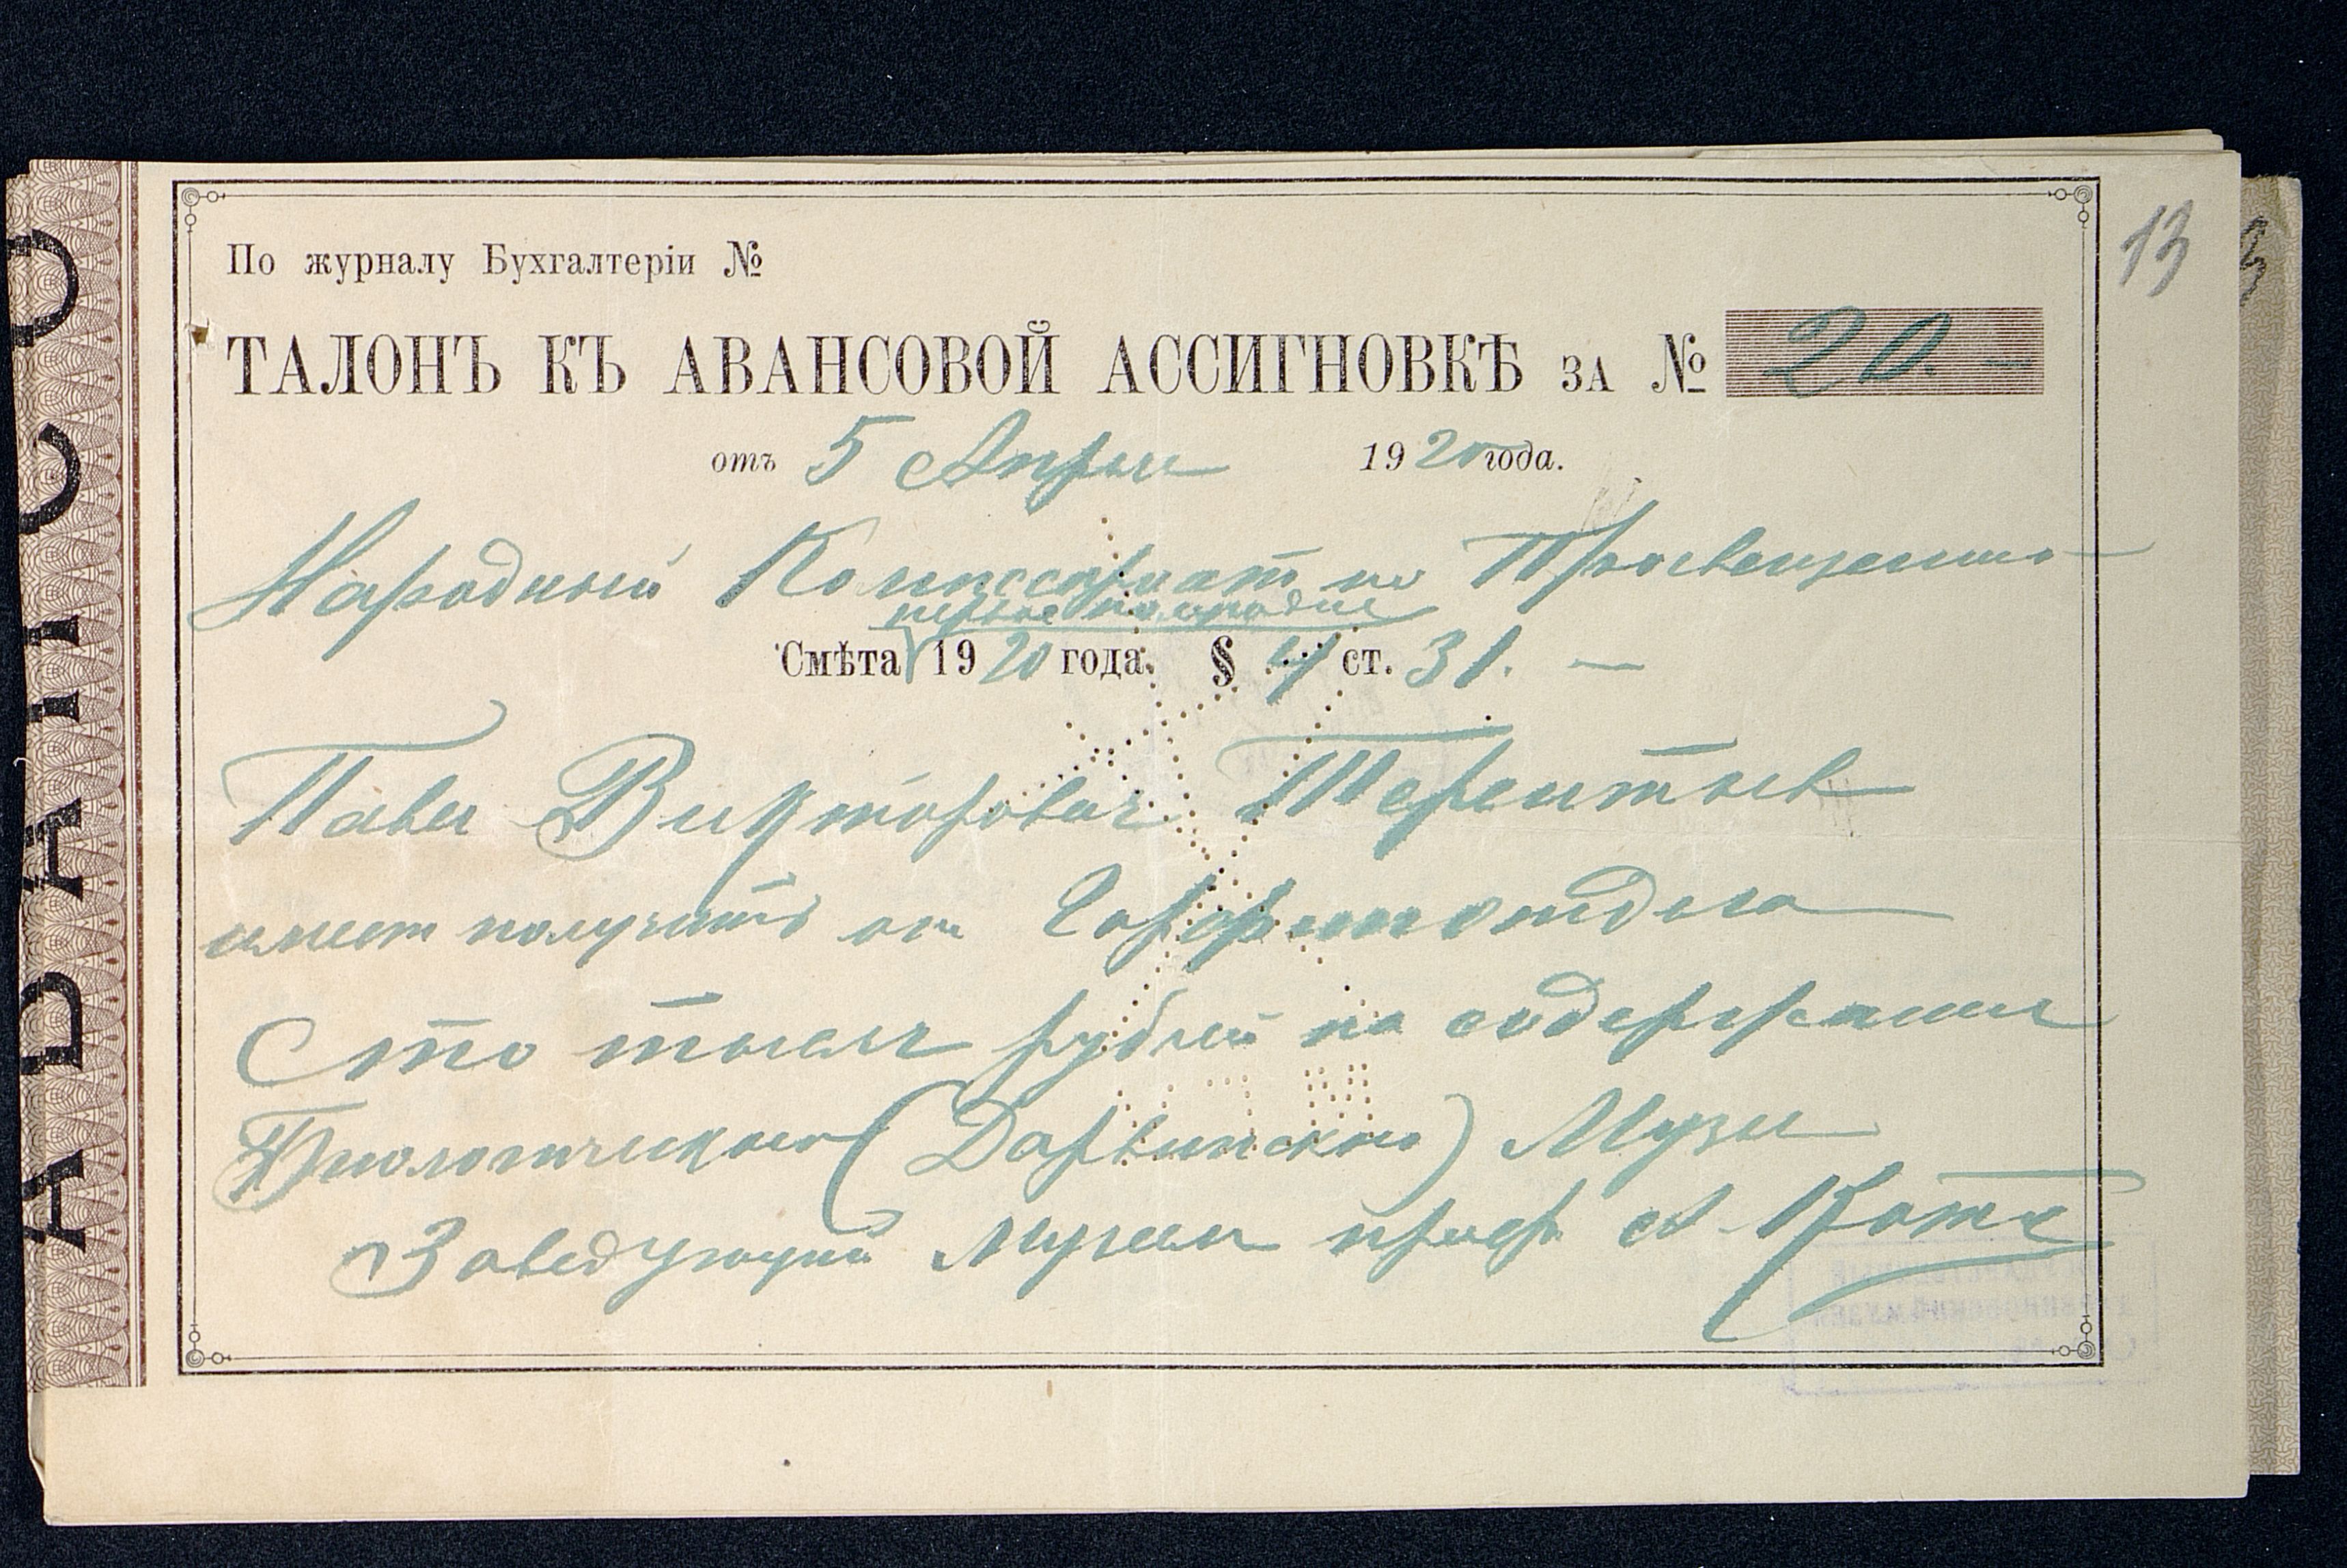 13
По журналу Бухгалтеріи №
ТАЛОНЪ КЪ АВАНСОВОЙ АССИГНОВКѢ ЗА № 20. —
отъ 5 Апреля 1920 года.
Народный Комиссариат по Просвещению
первое полугодие
Смѣта 1920 года. § 4 ст. 31. —
Павел Викторович Терентьев
имеет получить от
Сто тысяч рублей на содержание
Биологического (Дарвинского) Музея
Заведующий Музеем проф. А. Котс
АВАНСО